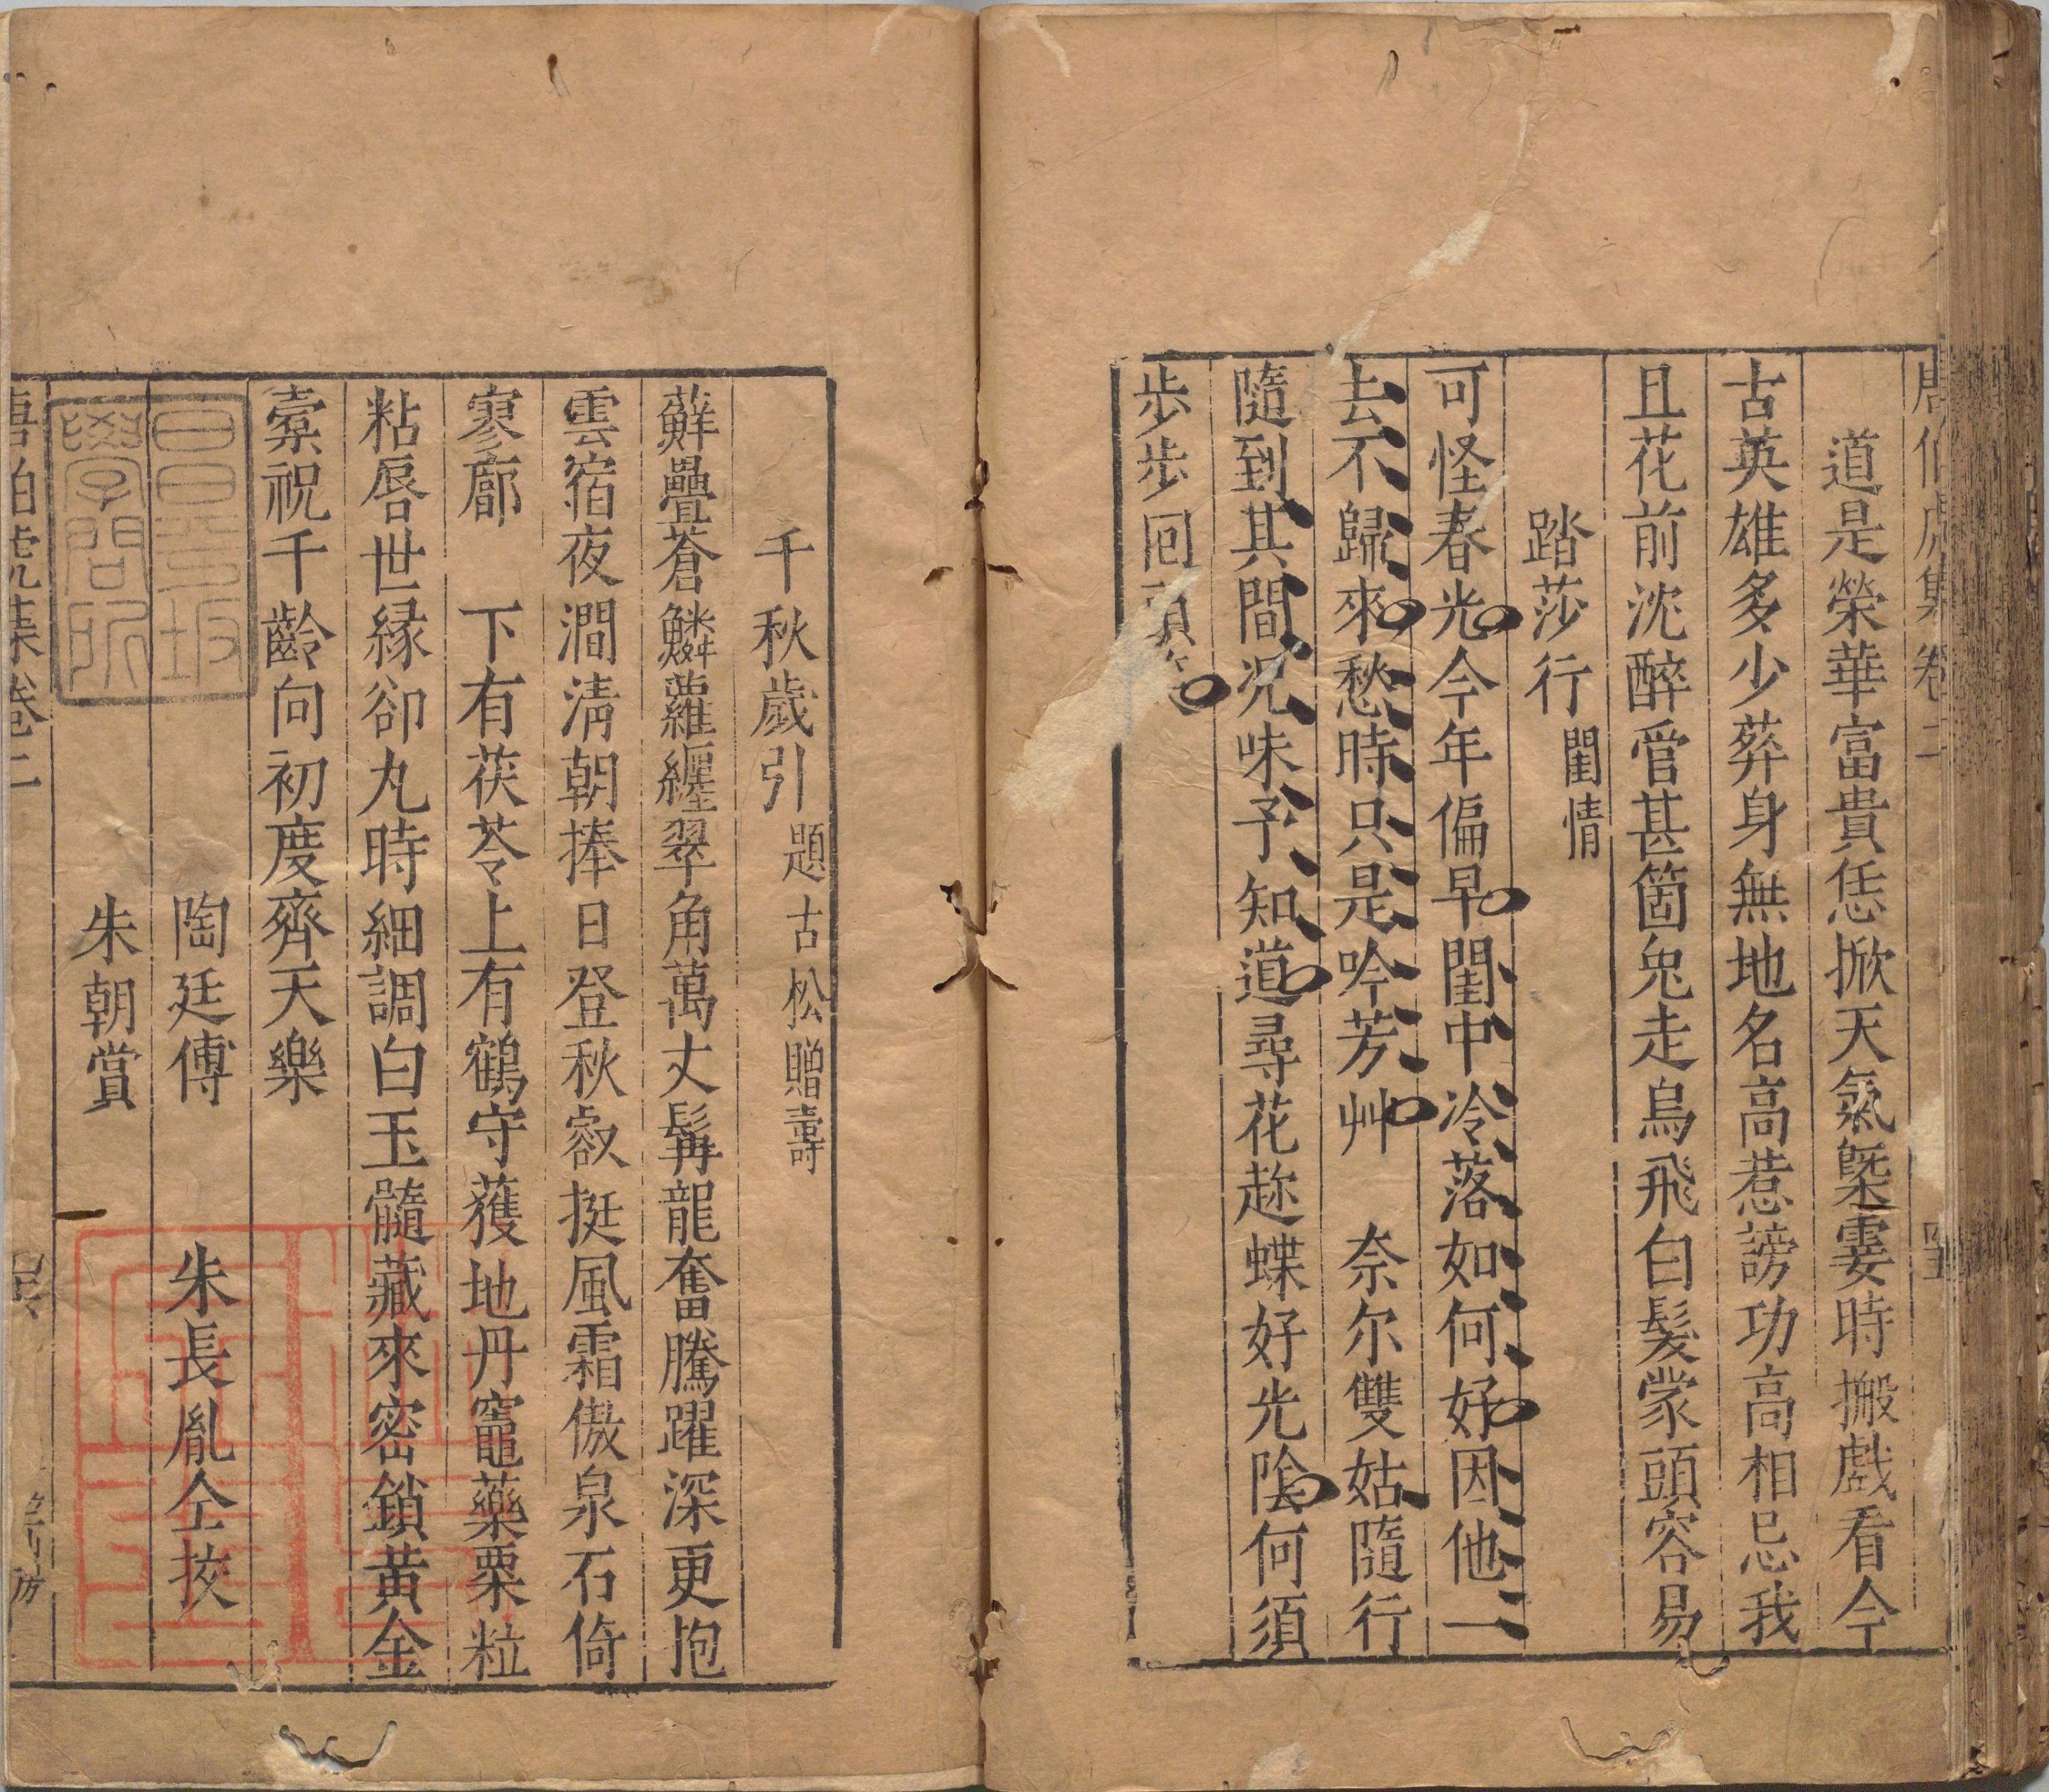 道是榮華富貴恁掀天氣槩霎時搬戲看今
古英雄多少葬身無地名高惹謗功高相忌我
且花前沈醉管甚箇兎走烏飛白髮蒙頭容易
踏莎行閨情
可怪春光今年偏早閨中冷落如何好因他一
去不歸來愁時只是吟芳艸　奈尔雙姑隨行
隨到其間況味予知道尋花趂蝶好光陰何須
步步回頭
千秋歲引題古松贈壽
蘚疊蒼鱗蘿纏翠角萬丈髯龍奮騰躍深更抱
雲宿夜澗清朝捧日登秋叡挺風霜傲泉石倚
寥廓　下有茯苓上有鶴守獲地丹竈藥粟粒
粘唇世緣卻丸時細調白玉髓藏來密鎖黃金
橐祝千齡向初度齊天樂
陶廷傳　朱長胤仝挍
朱朝賞
唐伯虎集卷二